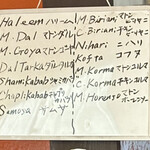 Haleem ハリーム
M. Dal マトンダル
M. Goya マトン
Dal Tarka ダルタルカ
Shamikabab シャミカバブ
Chaplikabab チャプリカバブ
Samosa サムサ
M. Birian マトンビリヤニ
C. Birian チキンビリヤニ
Nihari ニハリ
Kofta コフタ
M. Korma マトンコルマ
C. Korma チキンコルマ
M. マトン